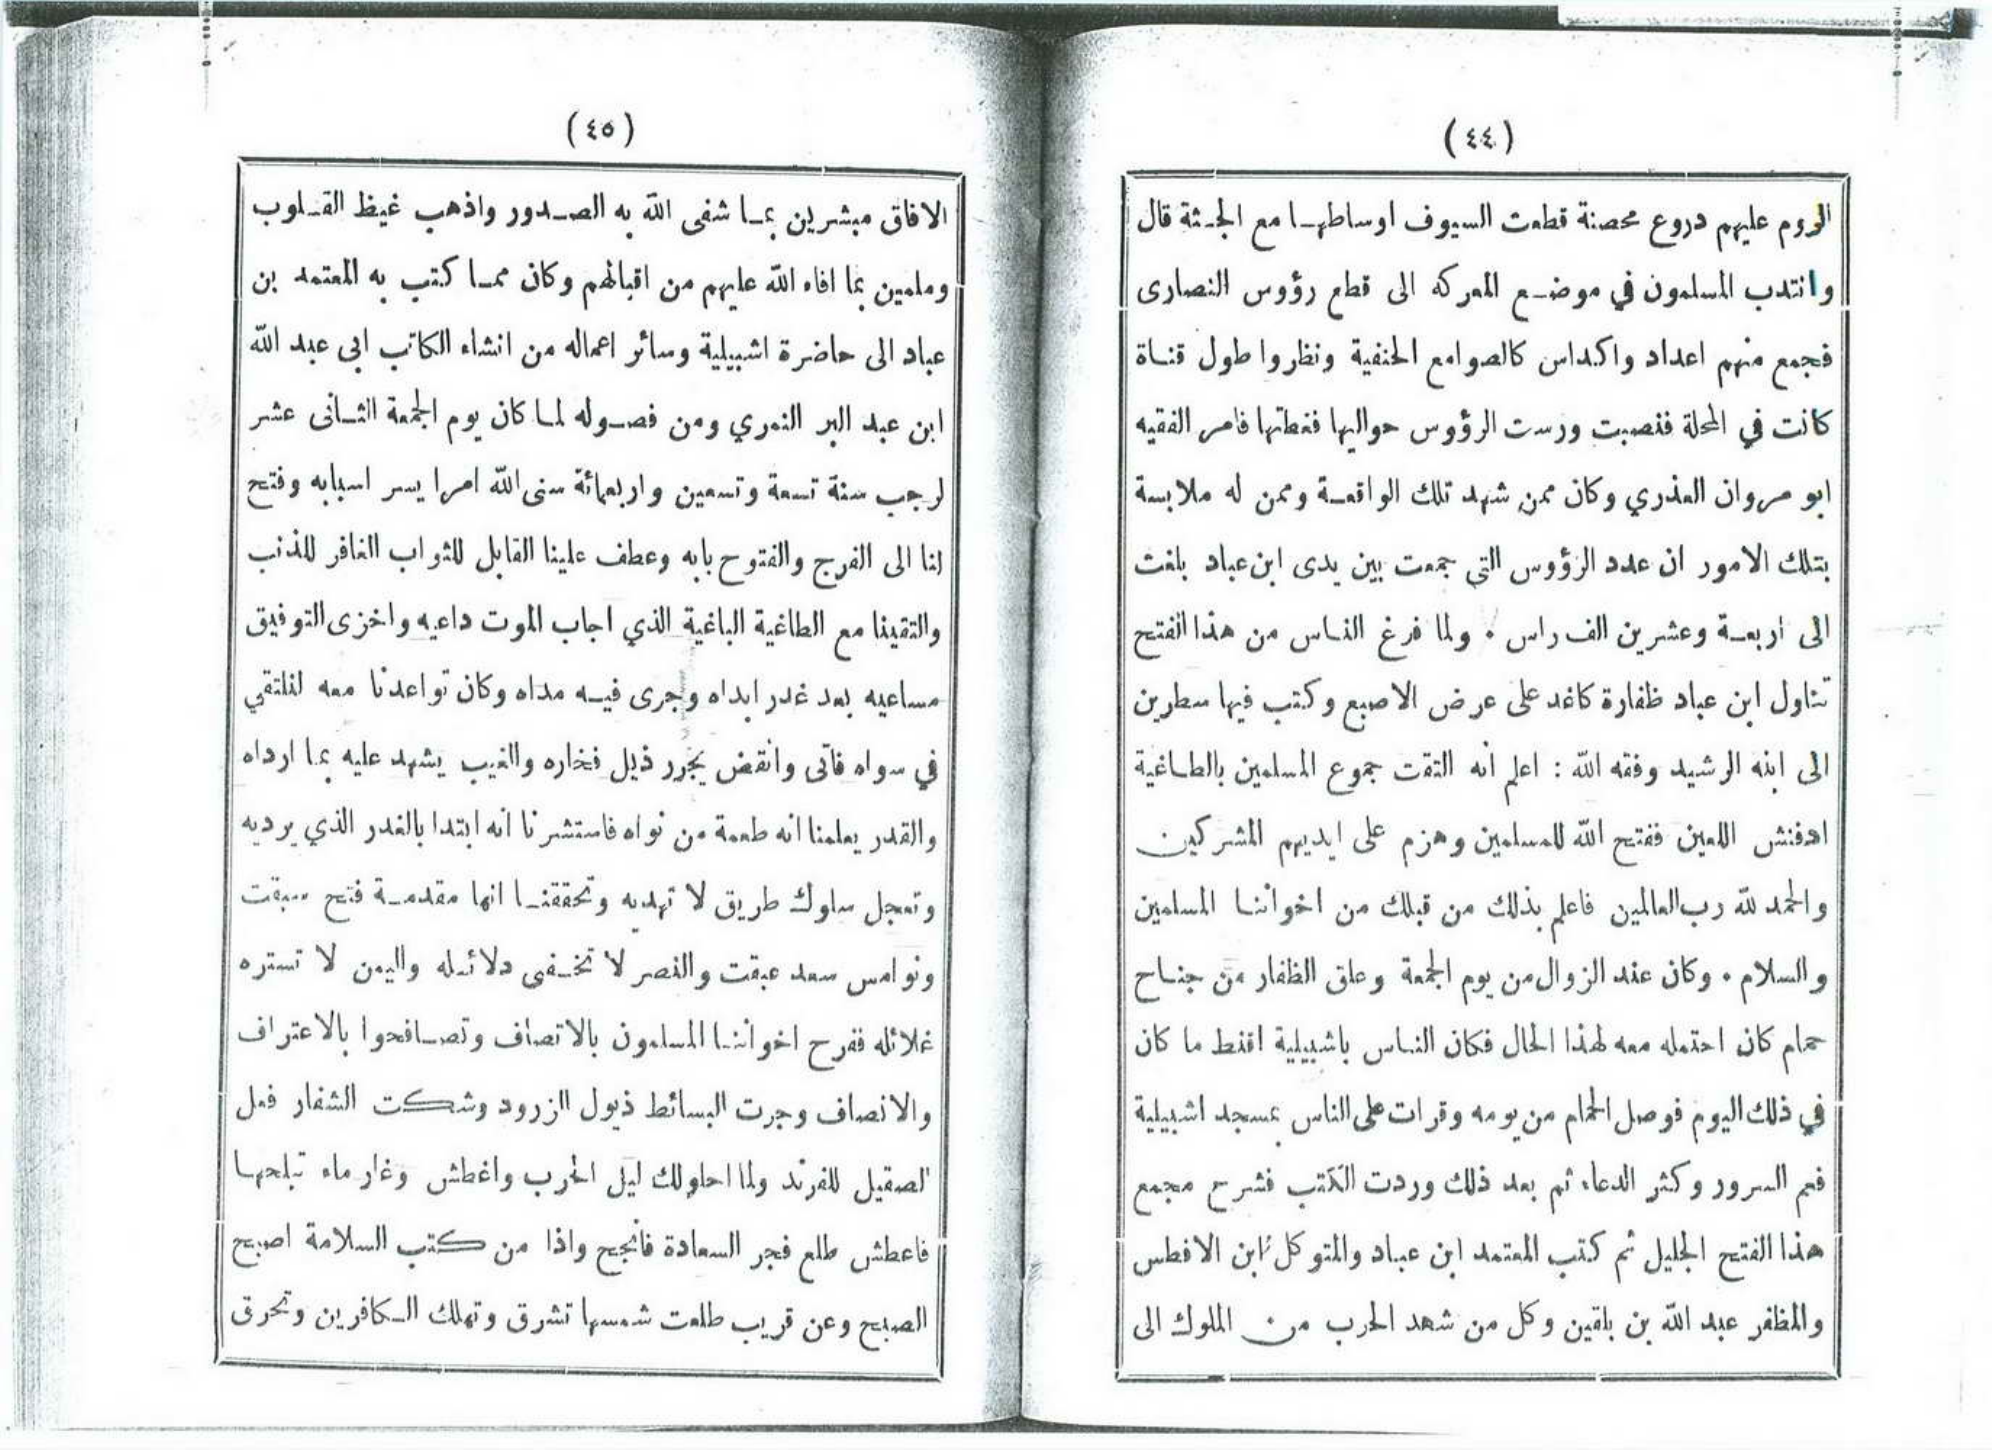 (٤٤)
الروم عليهم دروع محصنة قطعت السيوف اوساطها مع الجثة قال
وانتدب المسلمون في موضع المعركه الى قطع رؤوس النصارى
فجمع منهم اعداد واكداس كالصوامع الحنفية ونظروا طول قناة
كانت في المحلة فنصبت ورست الرؤوس حواليها فغطتها فامر الفقيه
ابو مروان العذري وكان ممن شهد تلك الواقعة وممن له ملابسة
بتلك الامور ان عدد الرؤوس التي جمعت بين يدى ابن عباد بلغت
الى اربعة وعشرين الف راس . ولما فرغ الناس من هذا الفتح
تناول ابن عباد ظفارة كاغد على عرض الاصبع وكتب فيها سطرين
الى ابنه الرشيد وفقه الله : اعلم انه التقت جموع المسلمين بالطاغية
ادفنش اللعين ففتح الله للمسلمين وهزم على ايديهم المشركين
والحمد لله رب العالمين فاعلم بذلك من قبلك من اخواننا المسلمين
والسلام . وكان عند الزوال من يوم الجمعة وعلق الظفار من جناح
حمام كان احتمله معه لهذا الحال فكان الناس باشبيلية اقنط ما كان
في ذلك اليوم فوصل الحمام من يومه وقرات على الناس بمسجد اشبيلية
فعم السرور وكثر الدعاء ثم بعد ذلك وردت الكتب فشرح مجمع
هذا الفتح الجليل ثم كتب المعتمد ابن عباد والمتوكل ابن الافطس
والمظفر عبد الله بن بلقين وكل من شهد الحرب من الملوك الى
(٤٥)
الافاق مبشرين بما شفى الله به الصدور واذهب غيظ القلوب
ومعلمين بما افاه الله عليهم من اقبالهم وكان مما كتب به المعتمد بن
عباد الى حاضرة اشبيلية وسائر اعماله من انشاء الكاتب ابى عبد الله
ابن عبد البر النمري ومن فصوله لما كان يوم الجمعة الثانى عشر
لرجب سنة تسعة وتسعين واربعمائة سنى الله امرا يسر اسبابه وفتح
لنا الى الفرج والفتوح بابه وعطف علينا القابل للثواب الغافر للذنب
والتقينا مع الطاغية الباغية الذي اجاب الموت داعيه واخزى التوفيق
مساعيه بعد غدر ابداه وجرى فيه مداه وكان تواعدنا معه لنلتقي
في سواه فاتى وانقض يجرر ذيل فخاره والغيب يشهد عليه بما ارداه
والقدر يعلمنا انه طعمة من نواه فاستشرنا انه ابتدا بالغدر الذي يرديه
وتعجل سلوك طريق لا تهديه وتحققنا انها مقدمة فتح سبقت
ونوامس سعد عبقت والنصر لا تخفى دلائله واليمن لا تستره
غلائله ففرح اخواننا المسلمون بالاتصاف وتصافحوا بالاعتراف
والانصاف وجرت البسائط ذيول الزرود وشكت الشفار فعل
الصقيل للفرند ولما احلولك ليل الحرب واغطش وغار ماء تبلجها
فاعطش طلع فجر السعادة فانجح واذا من كتب السلامة اصبح
الصبح وعن قريب طلعت شمسها تشرق وتهلك الكافرين وتحرق